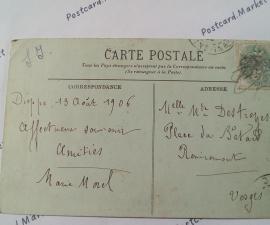 Postcard.Market
CARTE POSTALE
Tous les Pays étrangers n'acceptent pas la Correspondance au recto
(Se renseigner à la Poste)
CORRESPONDANCE
Dieppe 13 Août 1906
Affectueux souvenir
Amitiés
Marie Morel
ADRESSE
Melle Mie Destroyes
Place du Batard
Remiremont
Vosges